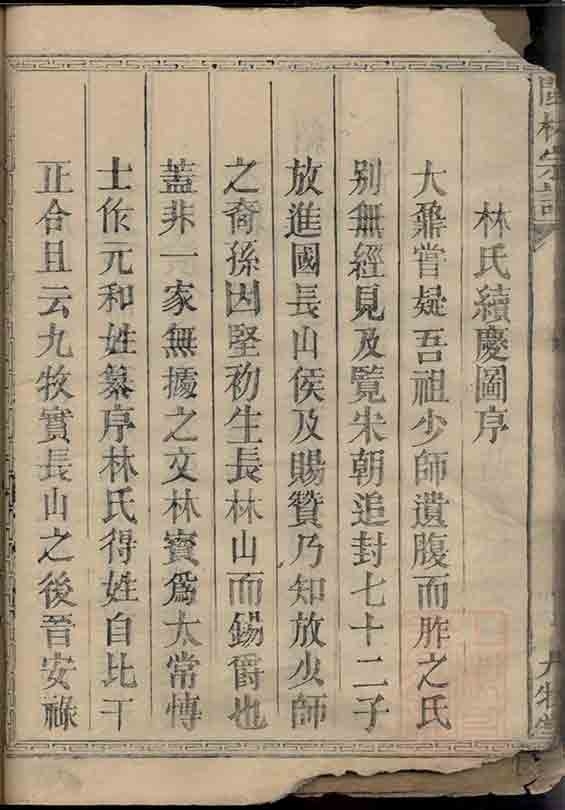 閩林宗譜
林氏續慶圖序
大鼐嘗疑吾祖少師遺腹而胙之氏
别無經見及覽宋朝追封七十二子
放進國長山侯及賜贊乃知放少師
之裔孫因堅初生長林山而錫爵也
蓋非一家無據之文林寶爲太常博
士作元和姓纂序林氏得姓自比干
正合且云九牧實長山之後晉安祿
九牧堂